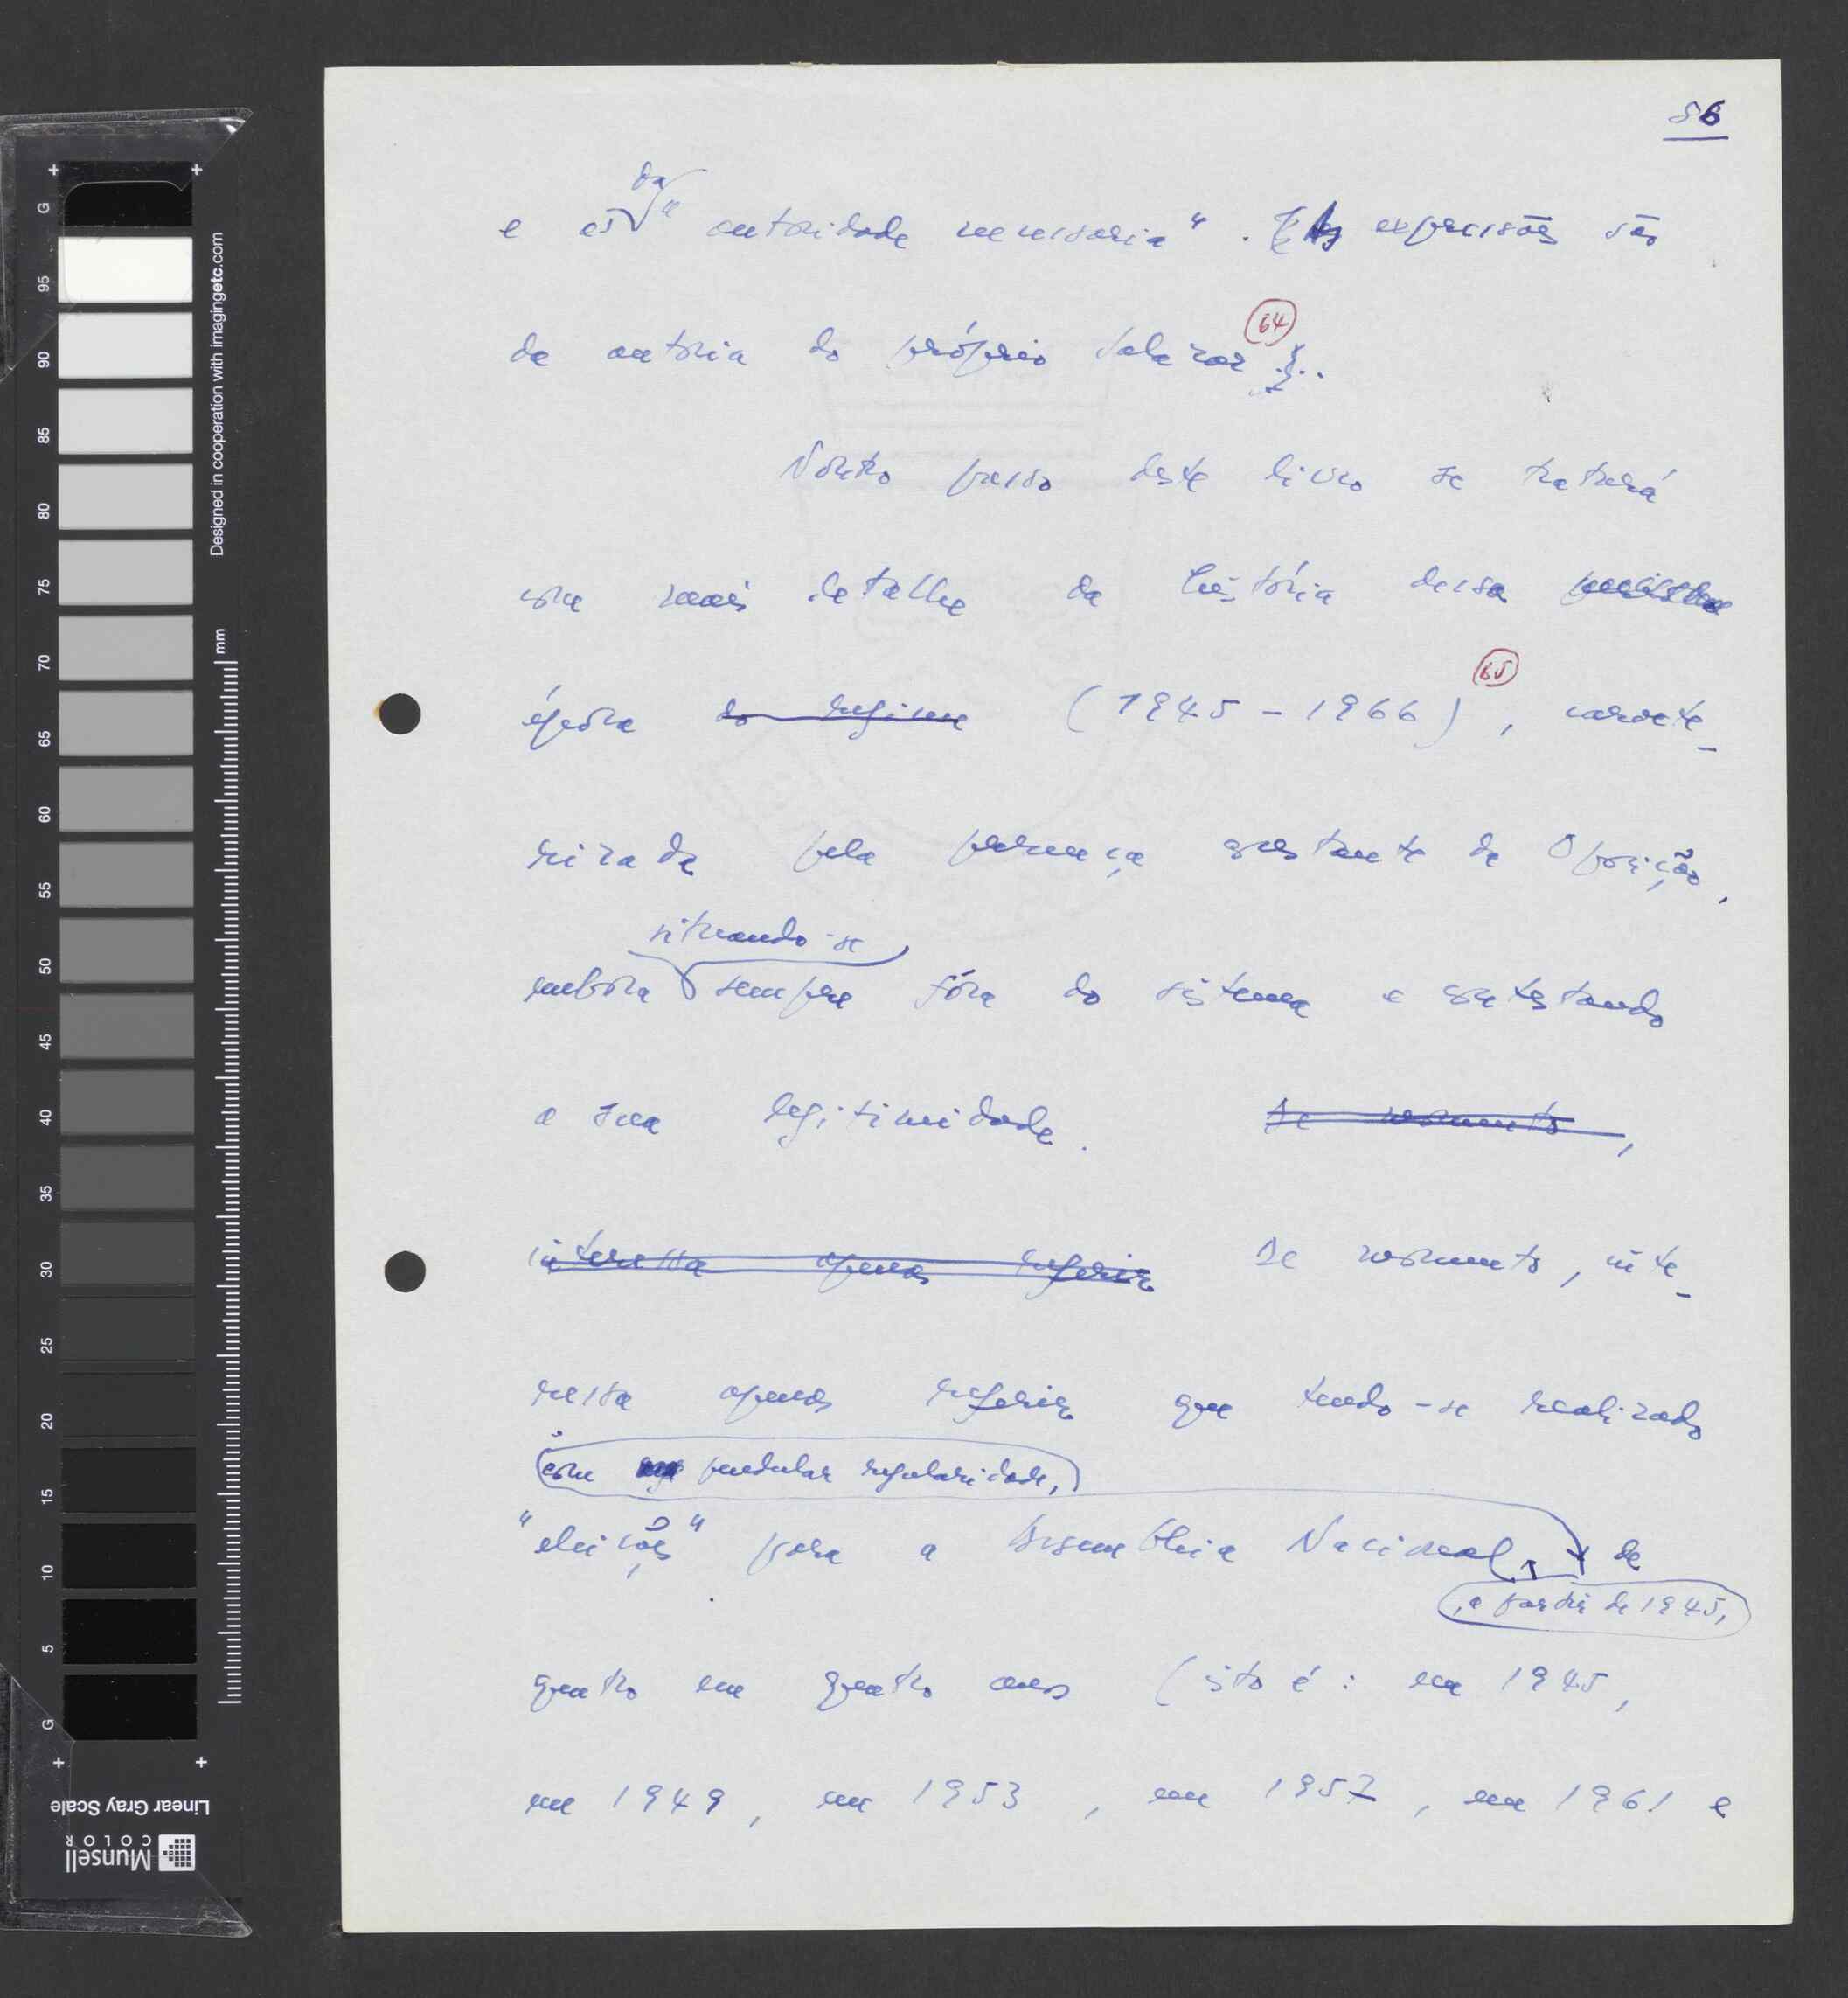 86
da
e "autoridade necessaria". As expressões são
da autoria do próprio Salazar (64).
Noutro passo deste livro se tratará
com mais detalhe da história dessa
época do regime (1945 - 1966) (65), caracte-
rizada pela presença constante da Oposição,
situando-se
embora sempre fóra do sistema e contestando
a sua legitimidade. De momento,
interessa apenas referir De momento, inte-
ressa apenas referir que tendo-se realizado
com pendular regularidade,
"eleições" para a Assembleia Nacional, de
, a partir de 1945,
quatro em quatro anos (isto é: em 1945,
em 1949, em 1953, em 1957, em 1961 e
G
95
90
85
80
75
70
65
60
55
50
45
40
35
30
25
20
15
10
5
G
Designed in cooperation with imagingetc.com
mm
Linear Gray Scale
Munsell
COLOR